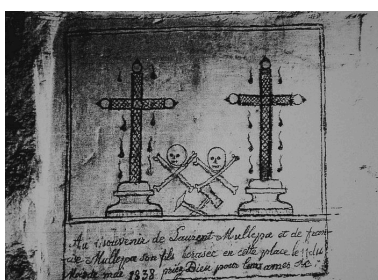 Au souvenir de Laurent Mullepa et de fran
Mullepa son fils écrasée en cette place le
mois de mai 1838 priez Dieu pour leurs ames